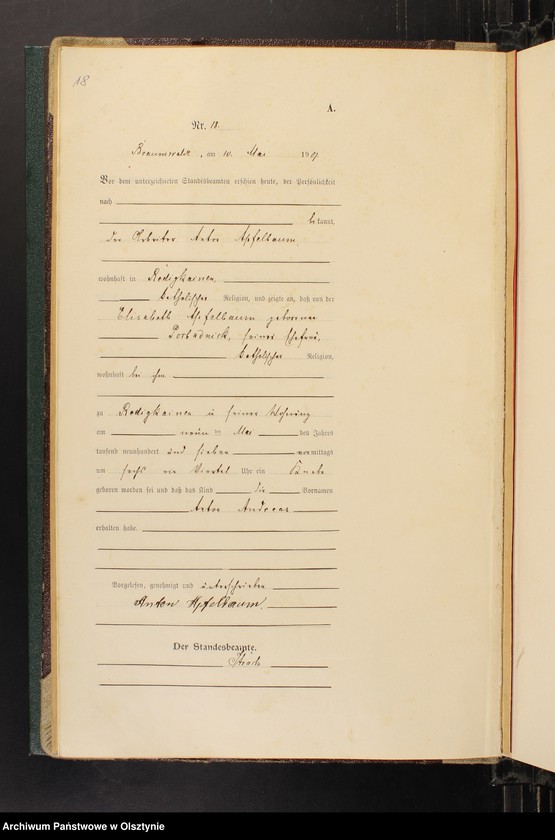 18
A.
Nr. 18.
Braunswalde, am 10. Mai 1907.
Vor dem unterzeichneten Standesbeamten erschien heute, der Persönlichkeit
nach
bekannt,
der Arbeiter Anton Apfelbaum,
wohnhaft in Redigkainen,
katholischer Religion, und zeigte an, daß von der
Elisabeth Apfelbaum geborenen
seiner Ehefrau,
katholischer Religion,
wohnhaft bei ihm
zu Redigkainen in seiner Wohnung
am neun ten Mai des Jahres
tausend neunhundert und sieben vormittags
um sechs ein Viertel Uhr ein Knabe
geboren worden sei und daß das Kind die Vornamen
Anton Andreas
erhalten habe.
Vorgelesen, genehmigt und unterschrieben
Anton Apfelbaum.
Der Standesbeamte.
Archiwum Państwowe w Olsztynie